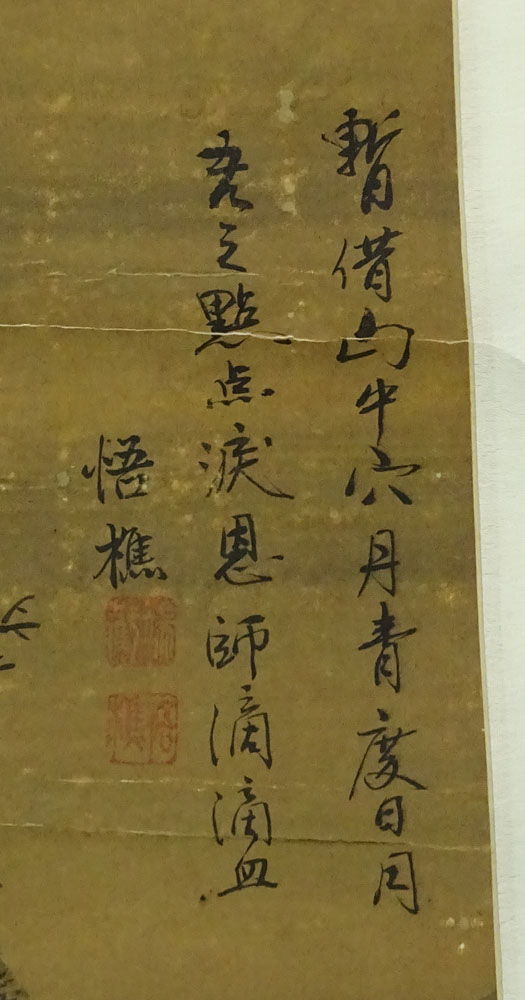 暫借山中穴丹青度日月
君之點点淚恩師滴滴血
悟樵